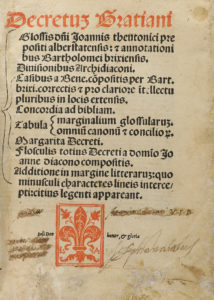 Decretuȝ Gratiani
Glossis dñi Joannis theutonici pre
positi alberstatensis: et annotationibus
Bartholomei brixiensis.
Diuisionibus Archidiaconi.
Casibus a Bene. cõpositis per Bart.
brixi. correctis et pro clariore ĩt: llectu
pluribus in locis extensis.
Concordia ad bibliam.
Tabula
marginalium glossularuȝ.
omniũ canonũ et conciliorꝝ.
Margarita Decreti.
Flosculis totius Decreti a domĩo Jo
anne diacono compositis.
Additione in margine litteraruȝ: quo
minusculi characteres lineis interce-
pti: citius legenti appareant.